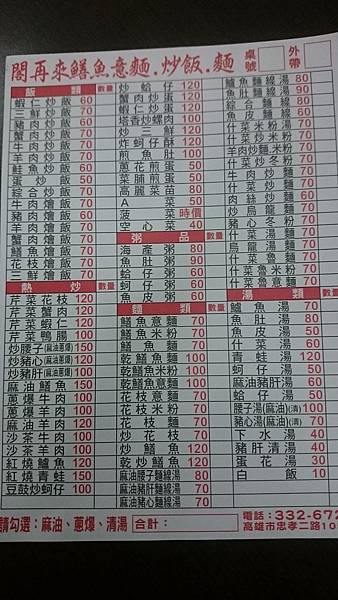 閣再來鱔魚意麵.炒飯.麵
桌號
外帶
飯類 數量
蝦仁炒飯 60
三鮮炒飯 70
豬肉炒飯 60
蟹肉炒飯 70
牛肉炒飯 70
羊肉炒飯 70
鮭魚炒飯 60
蛋炒飯 50
綜合炒飯 70
牛肉燴飯 70
豬肉燴飯 60
羊肉燴飯 70
蟹肉燴飯 70
鱔魚燴飯 70
花枝燴飯 70
三鮮燴飯 70
熱炒 數量
芹菜花枝 120
芹菜蟹肉 120
芹菜蝦仁 120
芹菜鴨腸 100
炒腰子(麻油蔥爆) 150
炒豬心(麻油蔥爆) 120
炒豬肝(麻油蔥爆) 100
麻油鱔魚 150
蔥爆牛肉 100
蔥爆羊肉 100
麻油羊肉 100
沙茶牛肉 100
沙茶羊肉 100
紅燒鱸魚 120
紅燒青蛙 150
豆鼓炒蚵仔 100
炒蛤仔 120
蟹肉炒蛋 120
蝦仁炒蛋 120
塔香炒螺肉 100
炒三鮮 120
炸蚵仔酥 120
煎魚肚 100
蔥花煎蛋 50
菜脯煎蛋 50
高麗菜苗 80
A菜 50
菠菜 時價
空心菜 40
粥品 數量
海產粥 80
魚肚粥 90
蛤仔粥 60
蚵仔粥 60
魚皮粥 60
麵類 數量
鱔魚意麵 70
鱔魚米粉 70
鱔魚麵 70
乾鱔魚麵 100
乾鱔魚米粉 100
乾鱔魚意麵 100
花枝意麵 70
花枝米粉 70
花枝麵 70
炒花枝 70
炒鱔魚 120
乾炒鱔魚 120
麻油腰子麵線湯 80
麻油豬肝麵線湯 70
麻油豬心麵線湯 70
鱸魚麵線湯 80
魚肚麵線湯 90
綜合麵線 80
魚皮麵線 60
什菜米粉湯 50
什菜炒米粉
什菜炒冬粉
牛肉炒麵 70
什菜炒麵 60
肉絲炒麵 60
炒烏龍麵 70
豬心冬粉 70
什菜湯麵 50
烏龍湯麵 70
什菜意麵 50
什菜魯米粉 70
什菜魯意麵 70
湯類 數量
鱸魚湯 70
魚肚湯 80
魚皮湯 50
什菜湯 60
青蛙湯 120
蚵仔湯 50
麻油豬肝湯 60
蛤仔湯 50
腰子湯(麻油)(清) 100
豬心湯(麻油)(清) 70
下水湯 40
豬肝清湯 40
蛋花湯 30
白飯 10
請勾選：麻油、蔥爆、清湯
合計：
電話：332-672
高雄市忠孝二路10